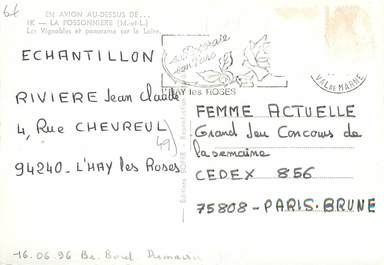 6€
EN AVION AU-DESSUS DE...
IK - LA POSSONNIERE (M.-et-L.)
Les Vignobles et panorama sur la Loire.
ECHANTILLON
L'HAY les ROSES
VAL DE MARNE
RIVIERE Jean Claude
4, Rue CHEVREUL
94240 - L'HAY les Roses
FEMME ACTUELLE
Grand Jeu Concours de
la semaine
CEDEX 856
75808 - PARIS-BRUNE
16.06.96